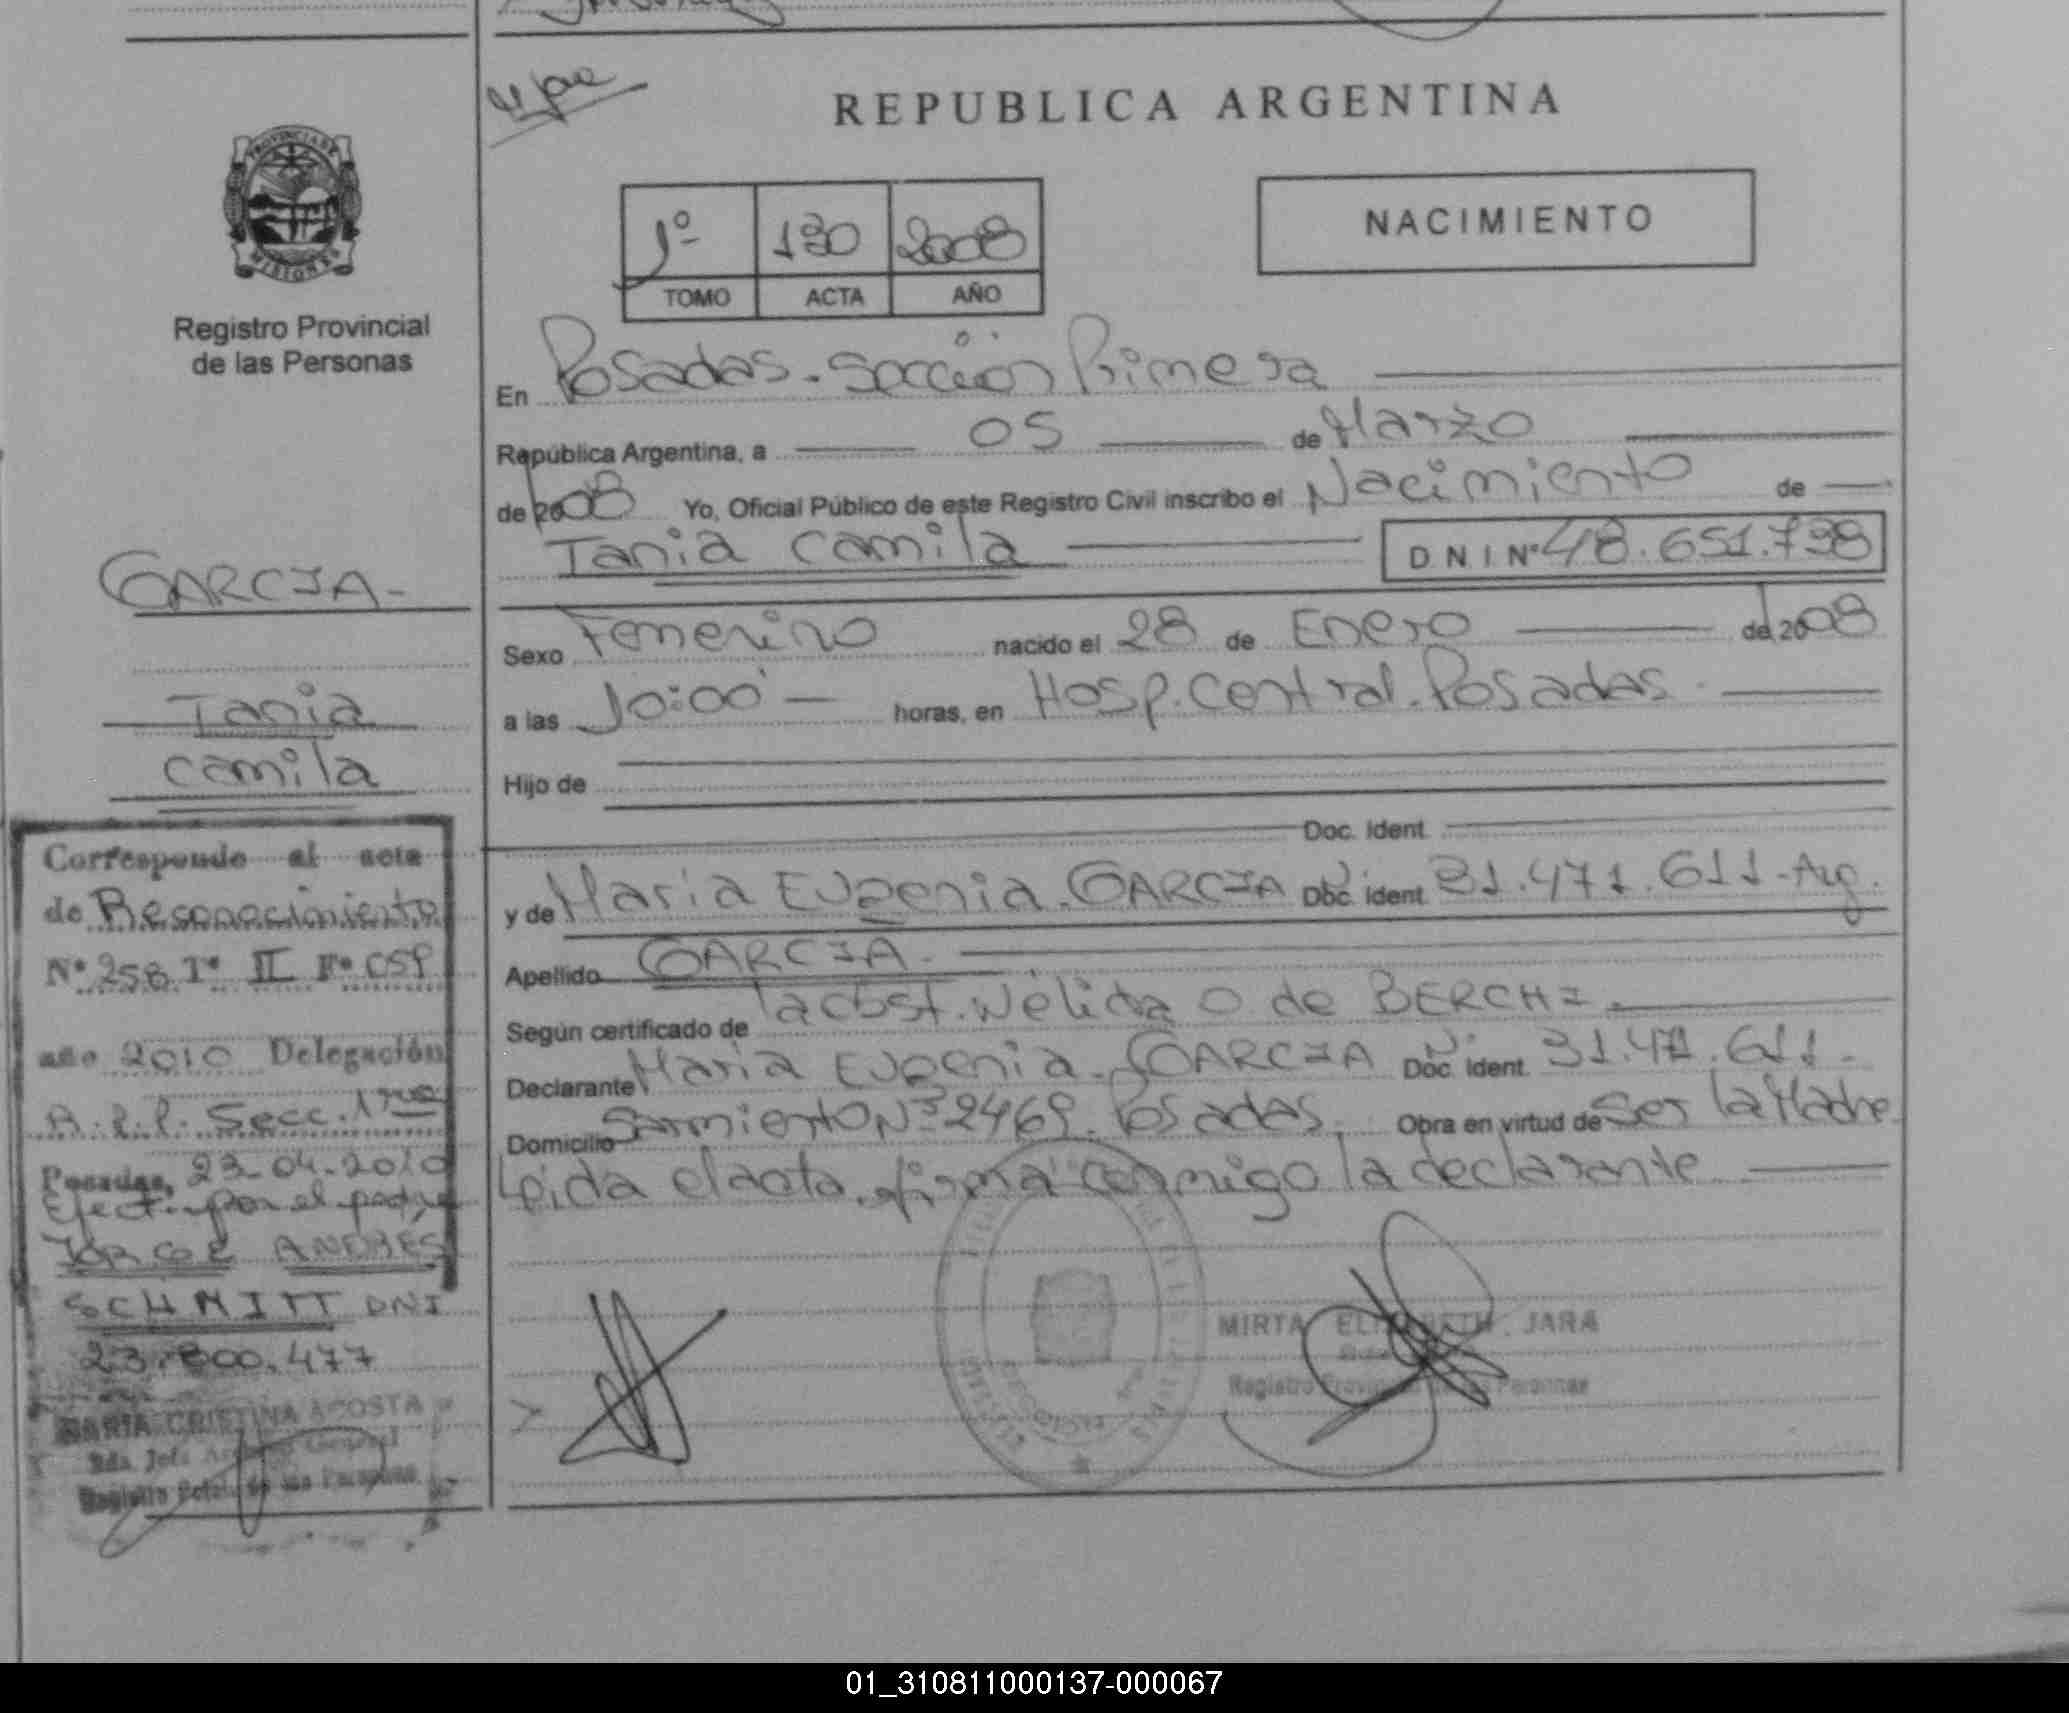 REPUBLICA ARGENTINA
PROVINCIA DE
MISIONES
Registro Provincial
de las Personas
NACIMIENTO
1º 130 2008
TOMO ACTA AÑO
En Posadas. Sección Primera
República Argentina, a 05 de Marzo
de 2008 Yo, Oficial Público de este Registro Civil inscribo el Nacimiento de
Tania Camila D N I Nº 48.651.798
Sexo Femenino nacido el 28 de Enero de 2008
a las 10:00 horas, en Hosp. Central. Posadas
Hijo de
Doc. Ident.
y de Maria Eugenia. GARCIA Doc. Ident. 31.471.611-Arg.
Apellido GARCIA.-
Según certificado de la obst. Nélida O. de BERCHI.
Declarante Maria Eugenia. GARCIA Doc. Ident. 31.471.611.-
Domicilio Sarmiento Nº 2469. Posadas. Obra en virtud de Ser la Madre
Leida el acta, firma conmigo la declarante
MIRTA ELIZABETH JARA
Registro Provincial de las Personas
GARCIA-
Tania
Camila
Corresponde al acta
de Reconocimiento
Nº 258 Tº II Fº 059
año 2010 Delegación
A.R.P. Secc. 1ra
Posadas, 23-04-2010
Efect. por el padre
JORGE ANDRÉS
SCHMITT DNI
23.800.477
MARIA CRISTINA ACOSTA
01_310811000137-000067